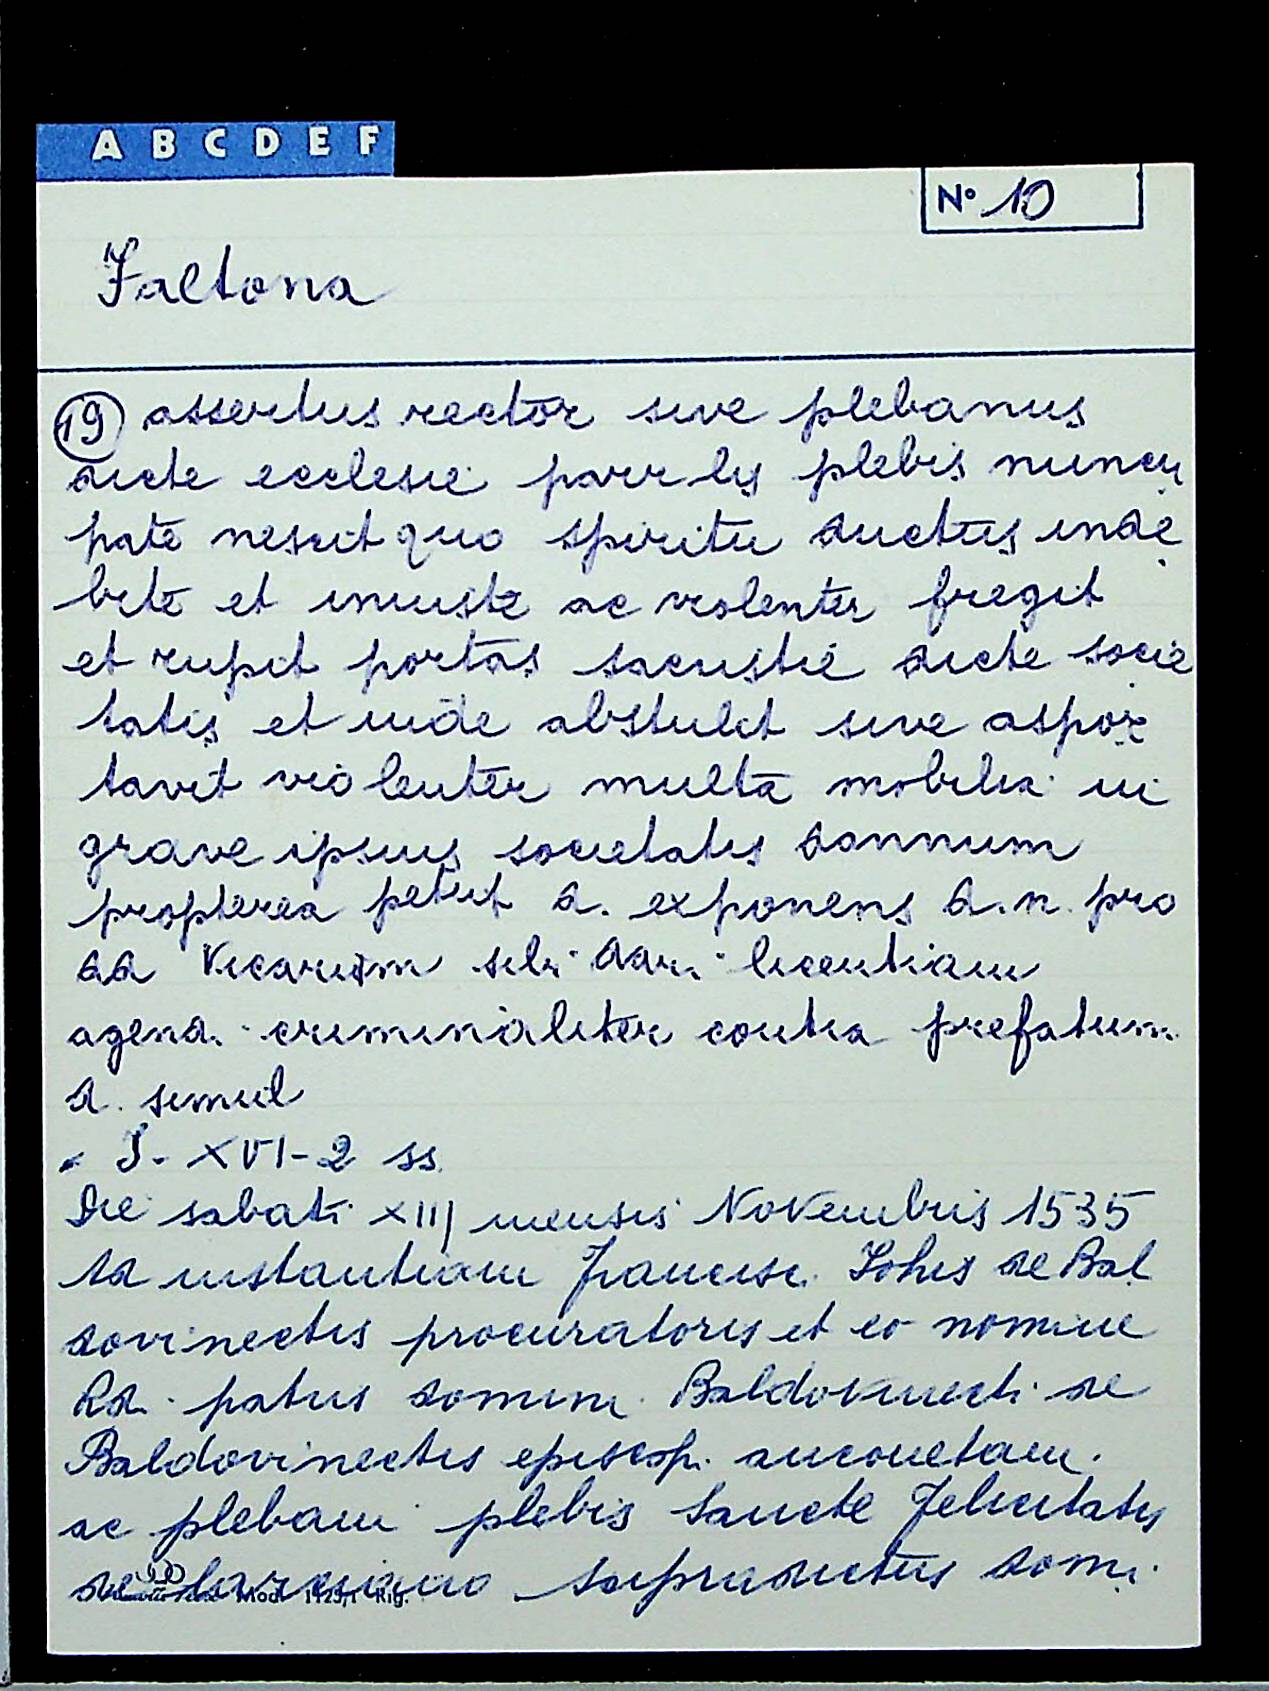 A B C D E F
Nº 10
Faltona
19 assertus rector sive plebanus
dicte ecclesie parr lis plebis nuncu
pate nescit quo spiritu ductus inde
bite et iniuste ac violenter fregit
et rupit portas sacristie dicte socie
tatis et inde abstulit sive aspor
tavit violenter multa mobilia in
grave ipsius societatis damnum
propterea petiit d. exponens d. n. pro
dd Vicarium sibi dari licentiam
agend. criminaliter contra prefatum
d. simul
I - XVI - 2 ss.
Die sabati XIII mensis Novembris 1535
Ad instantiam Francisc. Johis de Bal
dovinectis procuratoris et eo nomine
Rd. patris domini Baldovinecti de
Baldovinectis episcop. anconetam.
ac plebani plebis Sancte Felicitatis
de larciano supradictus dom.
Mod. Rig.